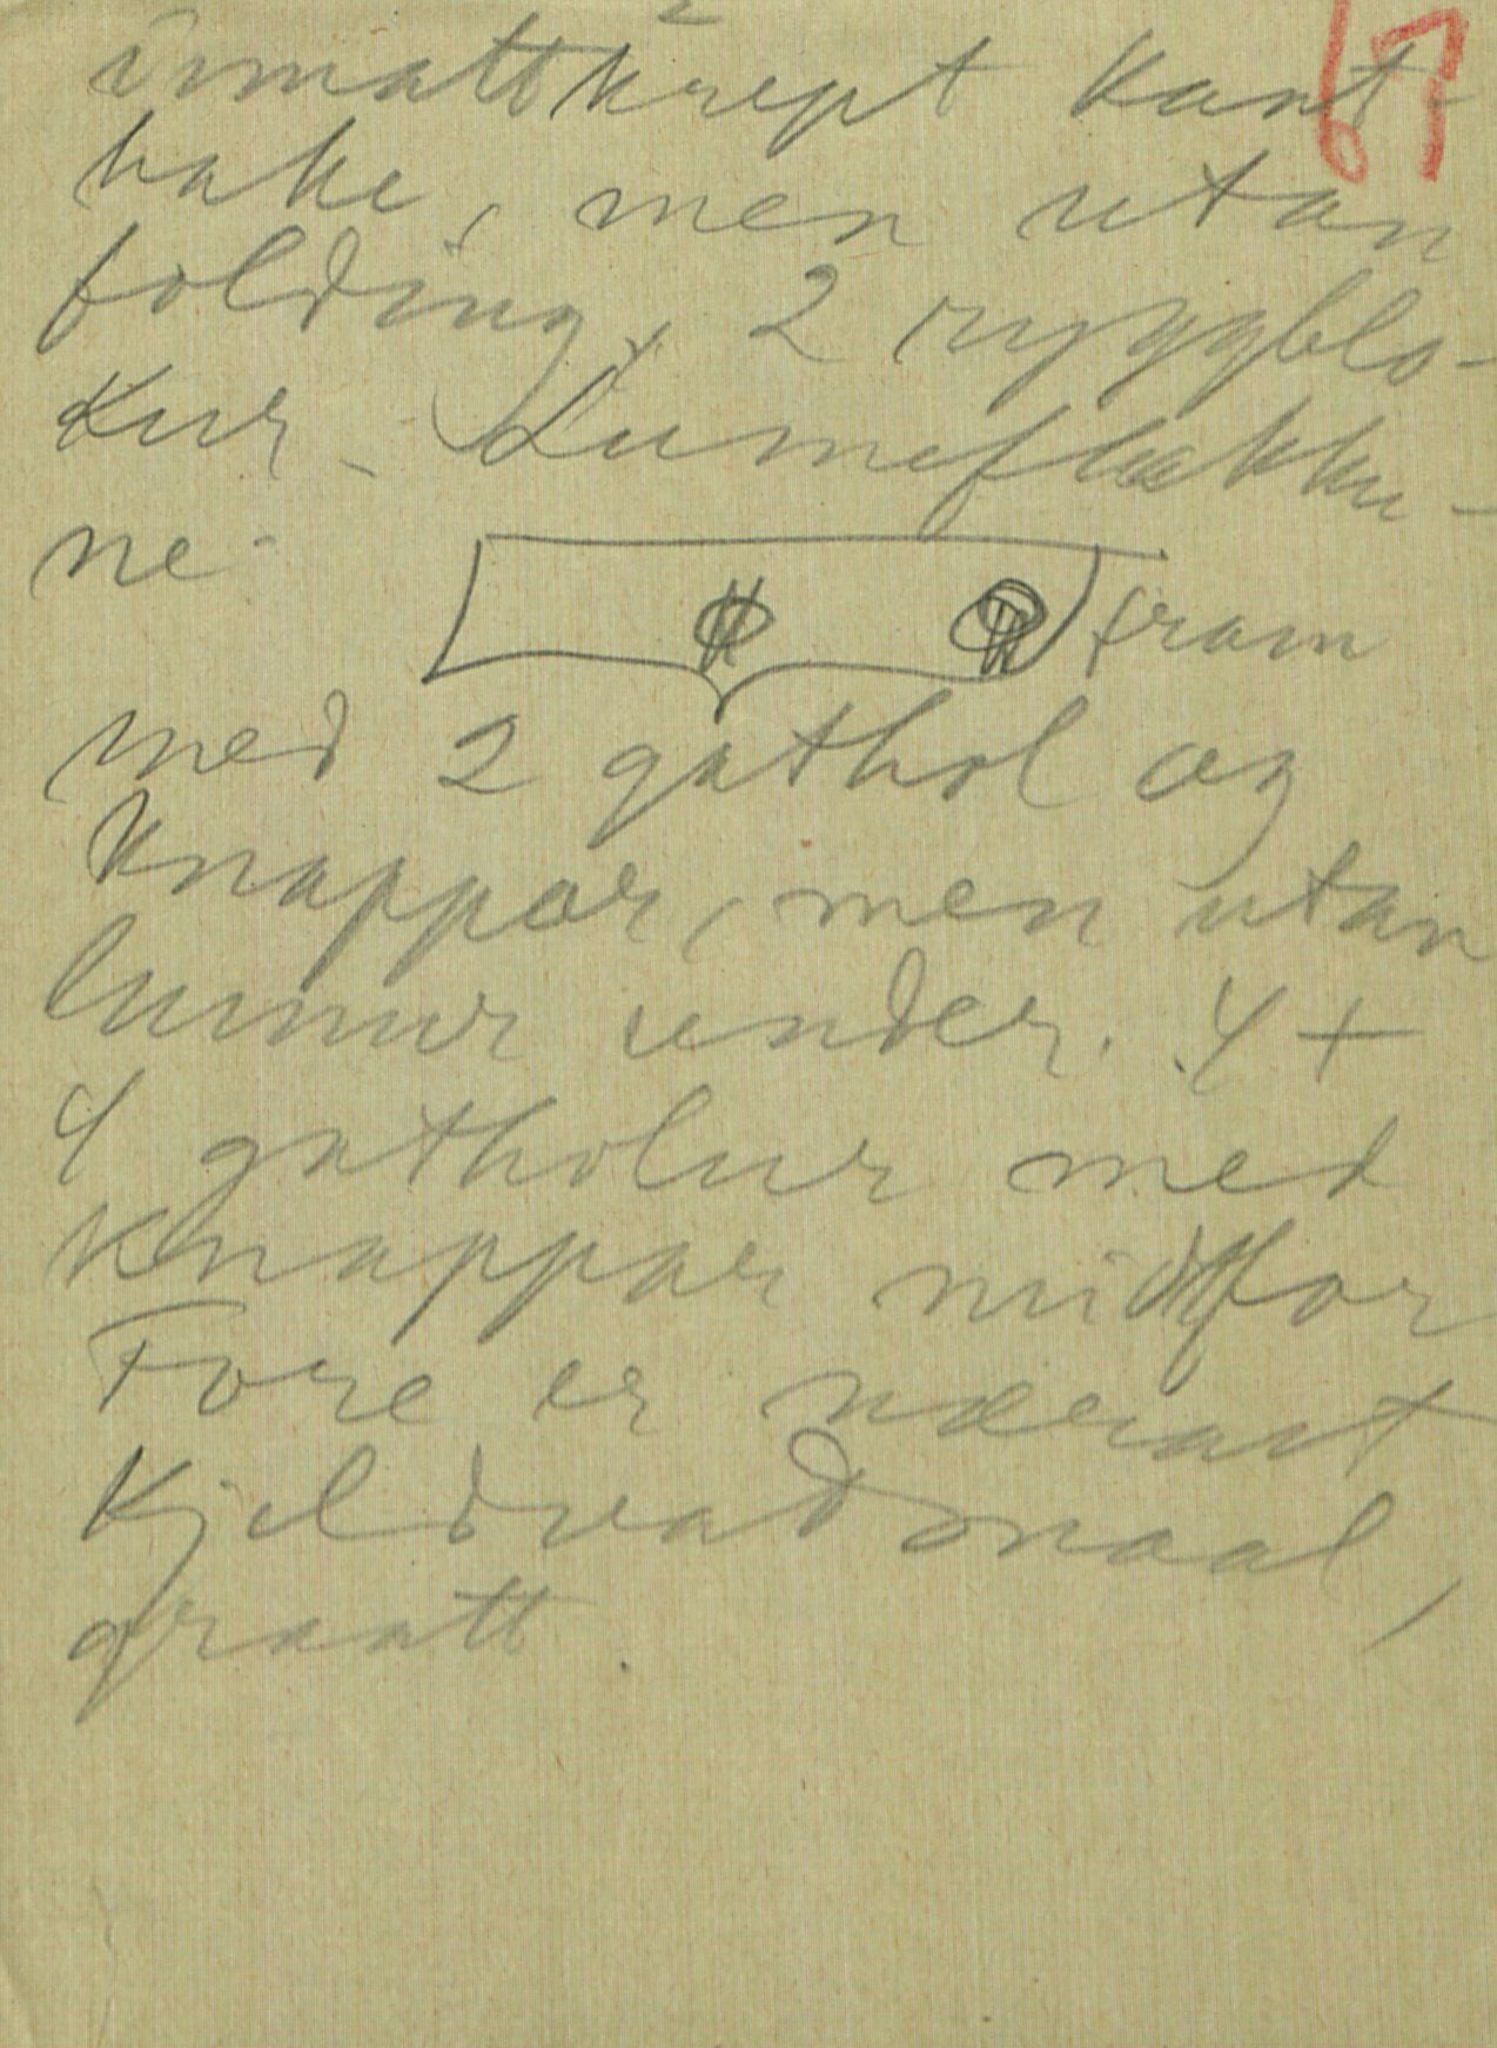 67
innattkrept kant
bake, men utan
folding, 2 ryggblo-
kur. Lumeflakku-
ne
fram
med 2 gathol og
knappar, men utan
lumur under. 4+
4 gatholur med
knappar midtfor
Fore er
Kjeldvadmaal,
graatt.